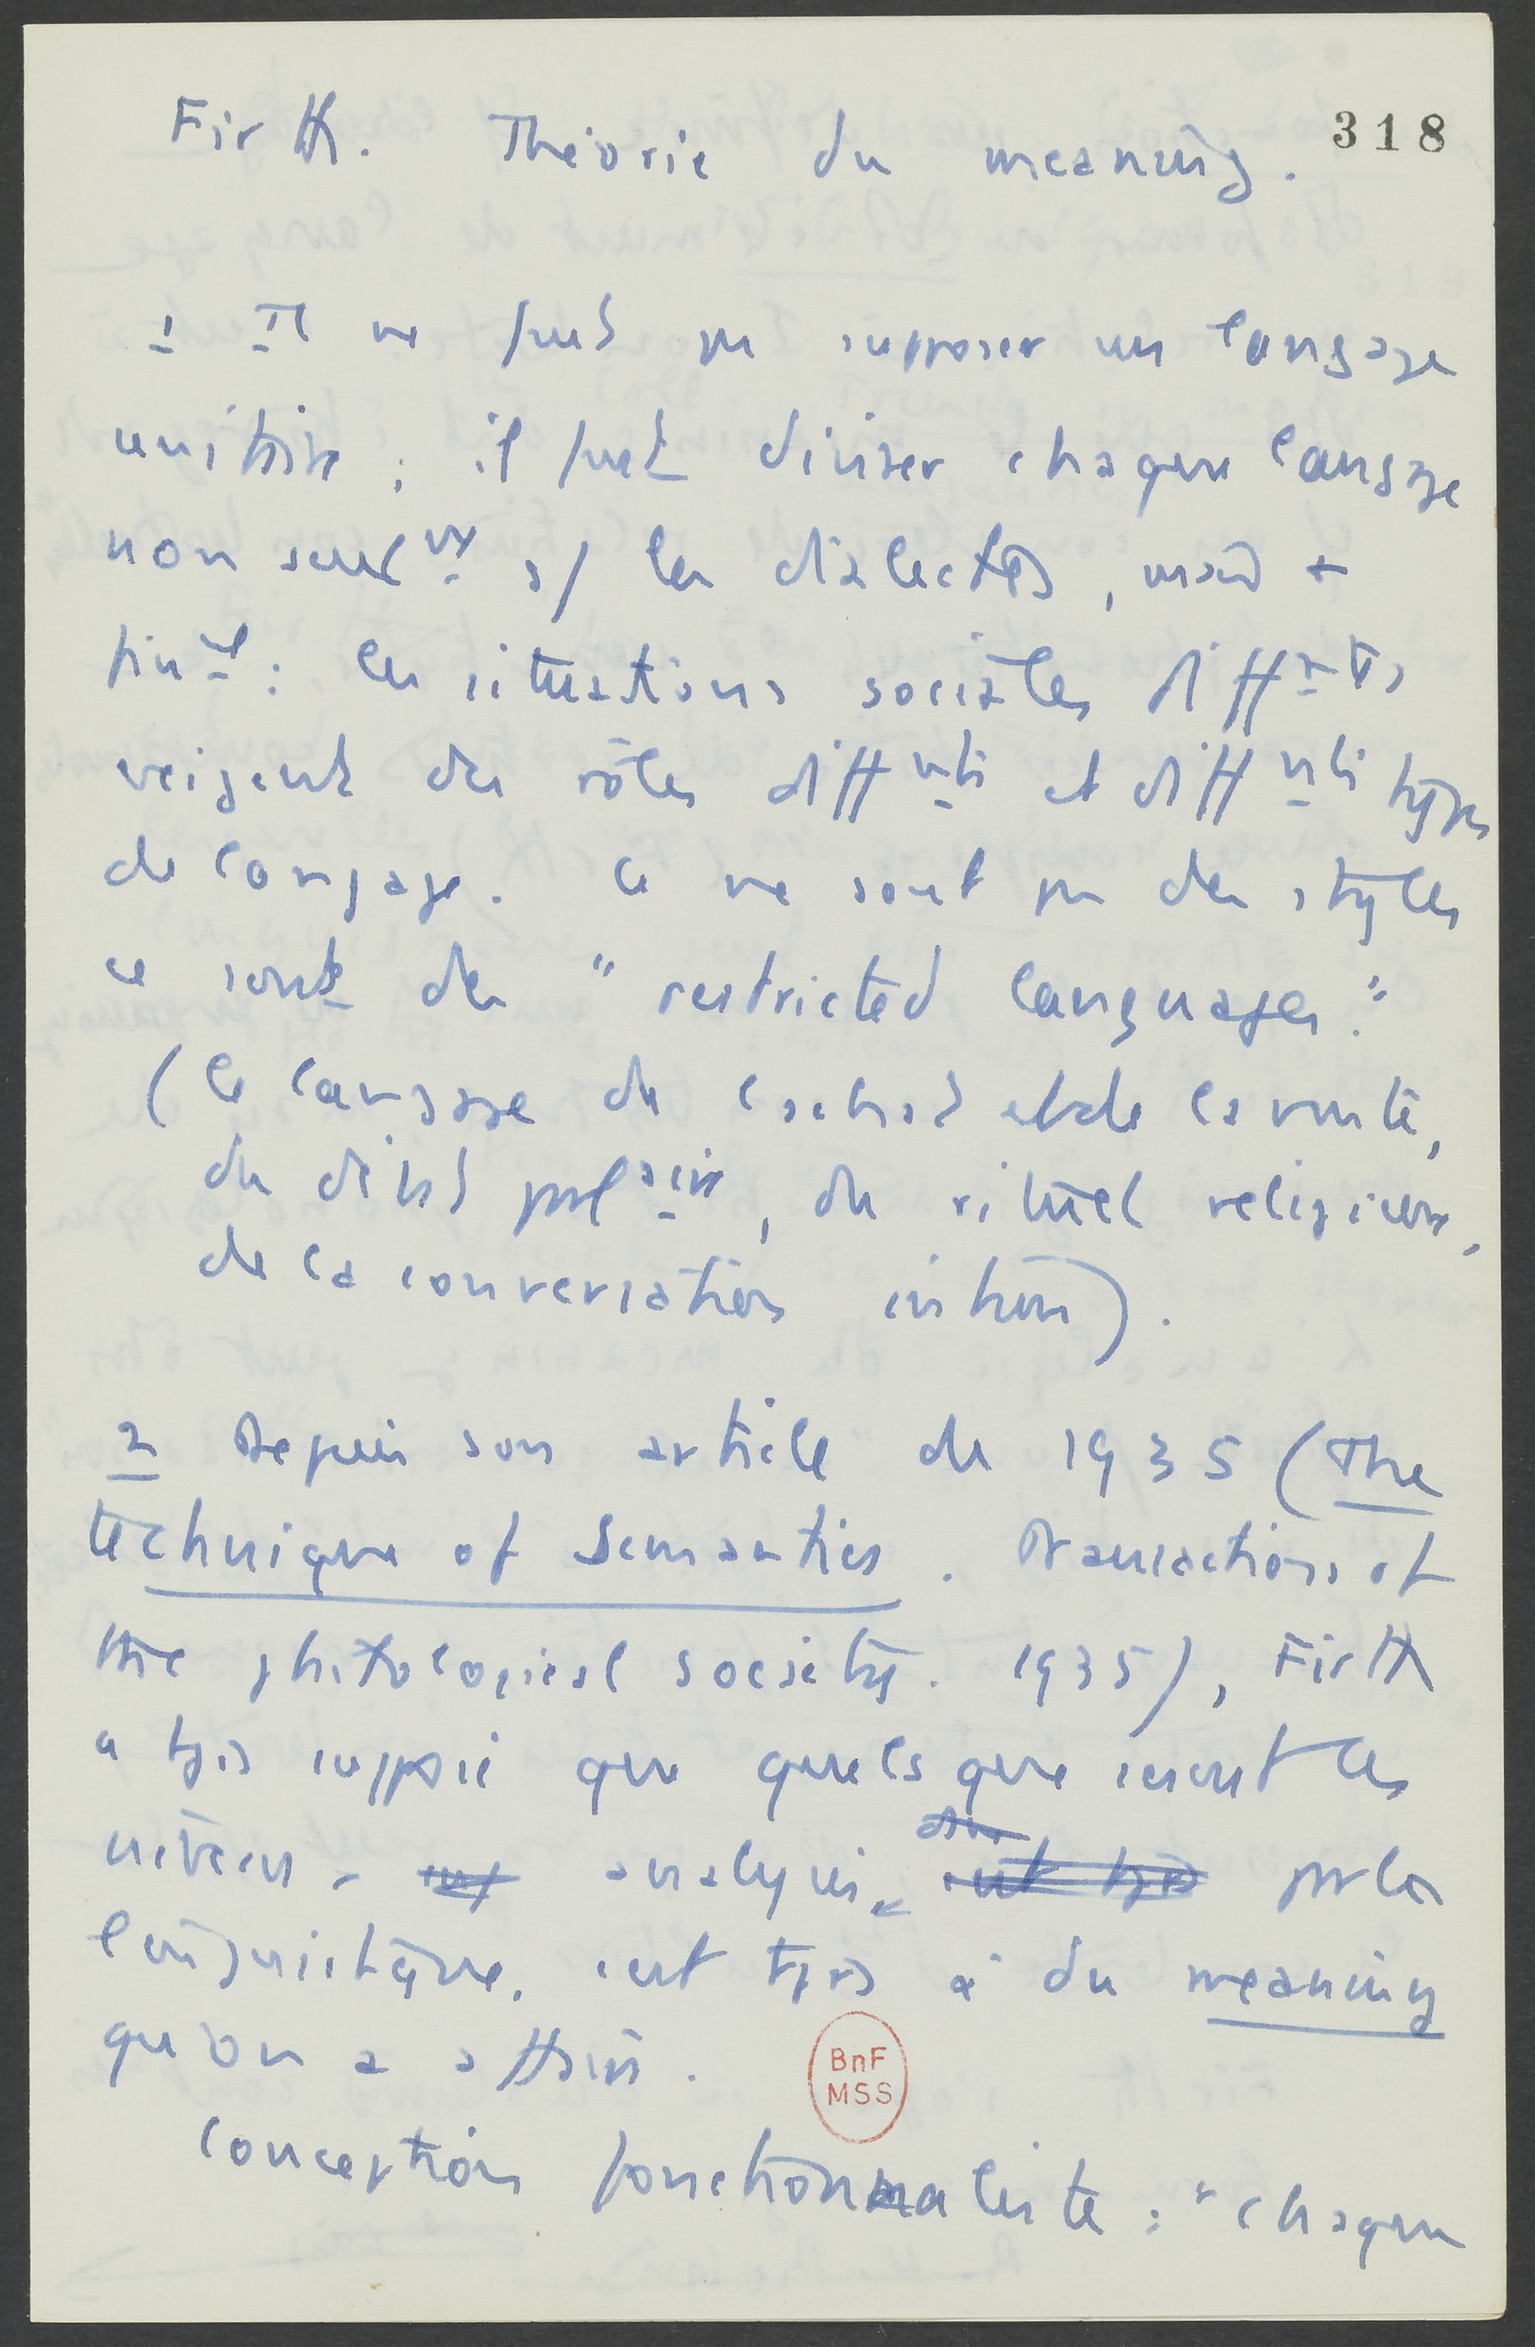 318
Firth. Théorie du meaning.
1 Il ne faut pas supposer un langage
unitaire ; il faut diviser chaque langage
non seulnt s/ les dialectes, mais +
finet : les situations sociales diffntes
exigent des rôles diffnts et diffnts types
de langage. Ce ne sont pas des styles
ce sont des "restricted languages."
(le langage de l'achat et de la vente,
du débat polaire, du rituel religieux,
de la conversation intime).
2 Depuis son article de 1935 (The
technique of Semantics. Transactions of
the philological society. 1935), Firth
a tjrs supposé que quels que soient les
niveaux analysés par la
linguistique, c'est tjrs à du meaning
qu'on a affaire.
Conception fonctionnaliste : "chaque
BnF
MSS